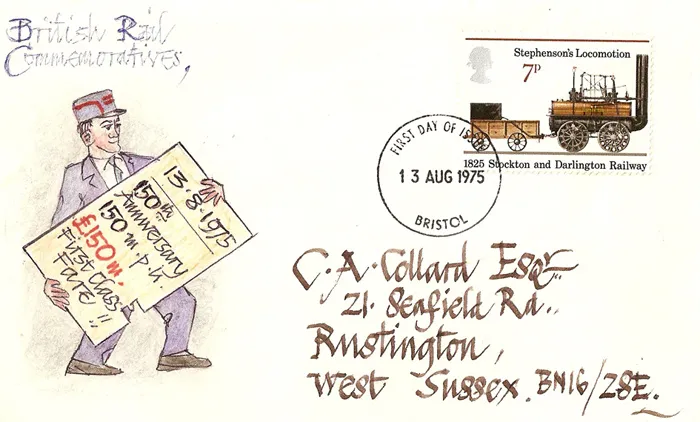 British Rail
Commemoratives,
13.8.1975
150th
Anniversary
150 m.p.h.
£150m.
First Class
Fare!!
Stephenson's Locomotion
7P
1825 Stockton and Darlington Railway
FIRST DAY OF ISSUE
13 AUG 1975
BRISTOL
C.A. Collard Esqr
21. Seafield Rd..
Rustington,
West Sussex. BN16/2SE.